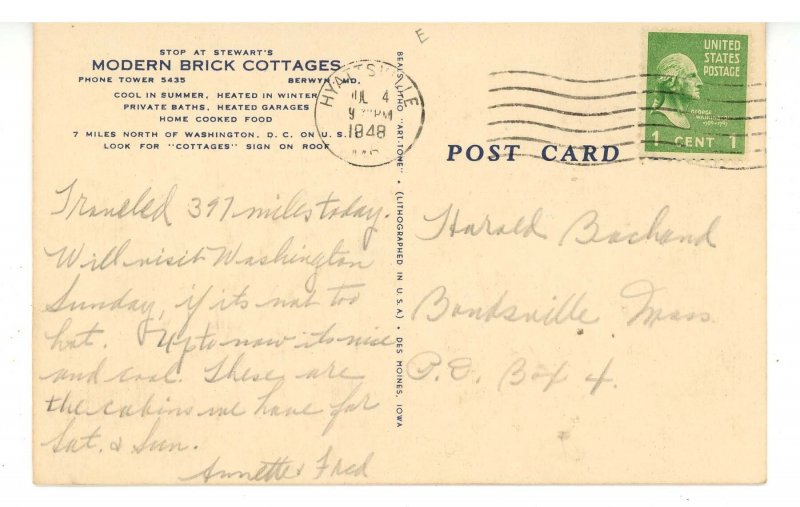 STOP AT STEWART'S
MODERN BRICK COTTAGES
PHONE TOWER 5435 BERWYN, MD.
COOL IN SUMMER, HEATED IN WINTER
PRIVATE BATHS, HEATED GARAGES
HOME COOKED FOOD
7 MILES NORTH OF WASHINGTON, D. C. ON U. S. 1
LOOK FOR "COTTAGES" SIGN ON ROOF
Traveled 397 miles today.
Will visit Washington
Sunday, if its not too
hot. Up to now its nice
and cool. These are
the cabins we have for
Sat. & Sun.
Annette & Fred
BEALS LITHO "ART-TONE" • (LITHOGRAPHED IN U.S.A.) • DES MOINES, IOWA
E
HYATTSVILLE
JUL 4
PM
1948
UNITED
STATES
POSTAGE
GEORGE
WASHINGTON
1 CENT 1
POST CARD
Harold Bachand
Bondsville, Mass.
P.O. Box 4.